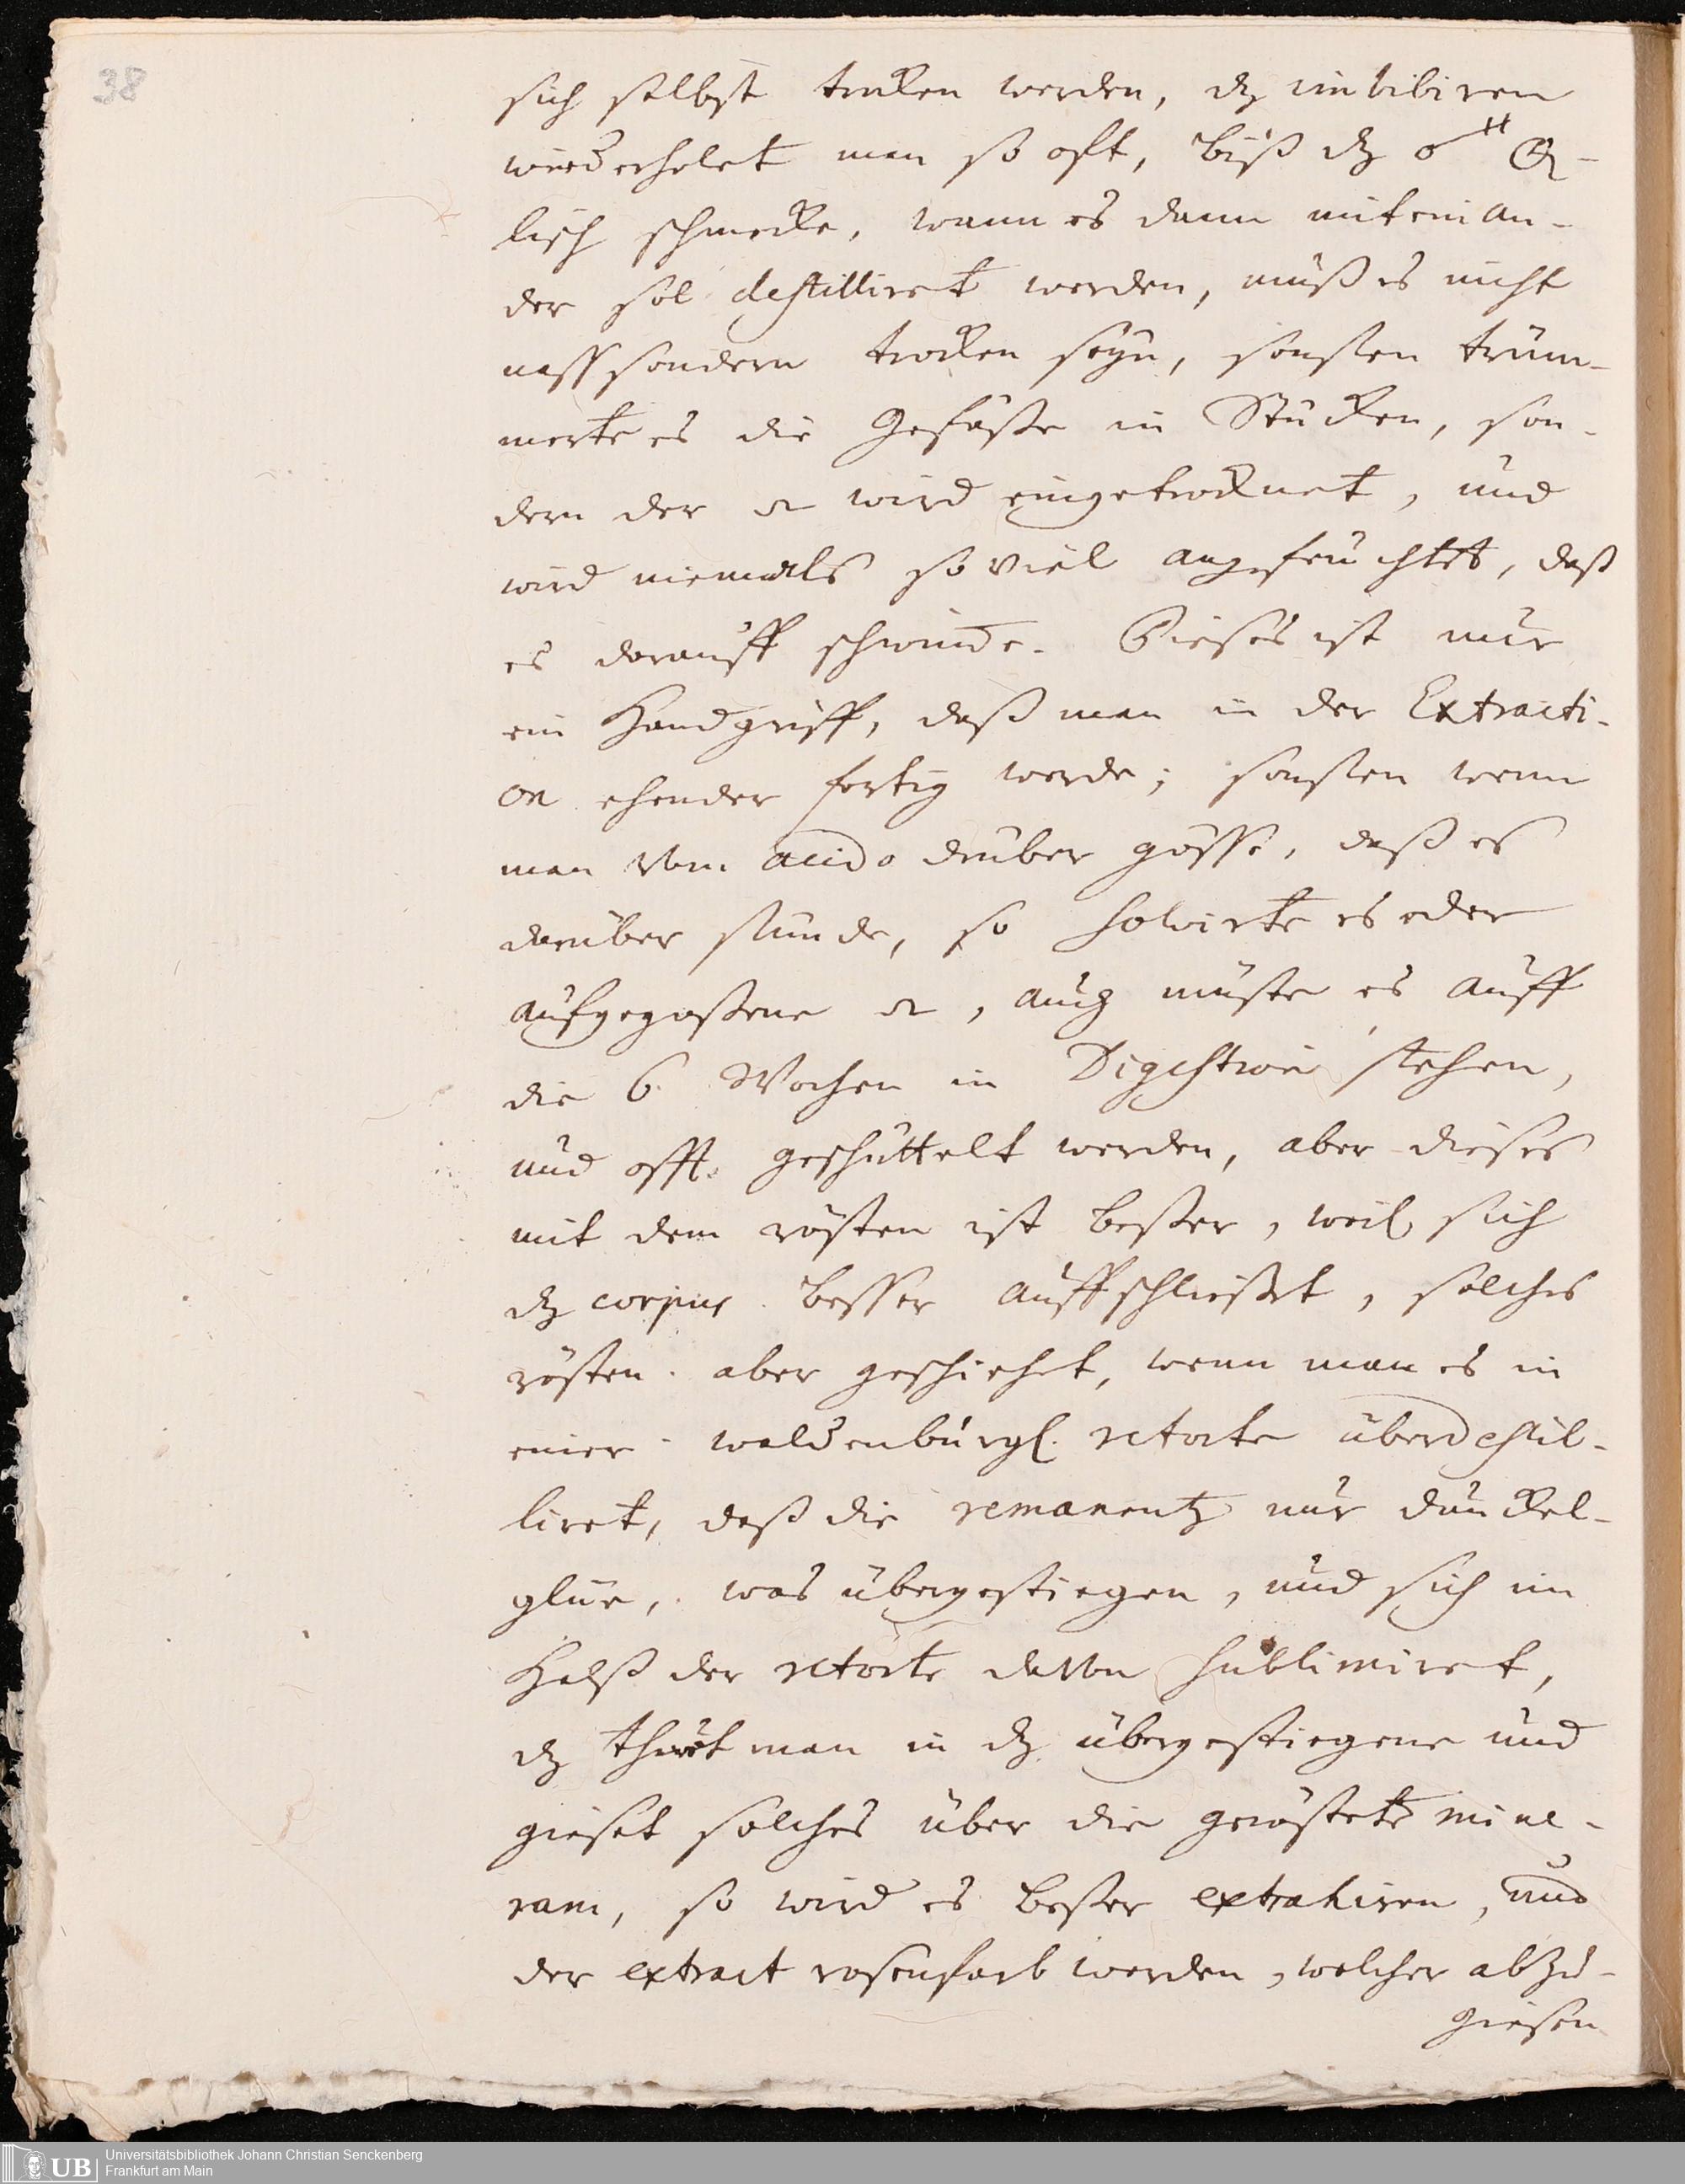 38
sich selbst trucken werden, dz imbibiren
wiederholet man so oft, biß dz
lisch schmecke, wann es dann mit einan-
der sol destilliret werden, muß es nicht
naß sondern trocken seyn, sonsten trüm-
merte es die Gefäße in Stücken, son-
dern der wird eingetrocknet, und
wird niemals so viel angefeuchtet, daß
es darauff schwinde. Dieses ist nur
ein Handgriff, daß man in der Extracti-
on ehender fertig werde; sonsten wenn
man vom acido drüber göße, daß es
darüber stünde, so solvirte es oder
aufgegoßene, auch müste es auff
die 6. Wochen in Digestion stehen,
und offt. geschüttelt werden, aber dieses
mit dem rösten ist beßer, weil sich
dz corpus besser auffschließet, solches
rösten. aber geschiehet, wenn man es in
einer waldenburgl. retorte überdestil-
liret, daß die remanentz nur dunckel-
glüe, was übergestiegen, und sich im
Halß der retorte davon sublimiret,
dz thut man in dz übergestiegene und
gießet solches über die geröstete mine-
ram, so wird es beßer extrahiren, und
der extract rosenfarb werden, welcher abzu-
gießen
UB Universitätsbibliothek Johann Christian Senckenberg
Frankfurt am Main